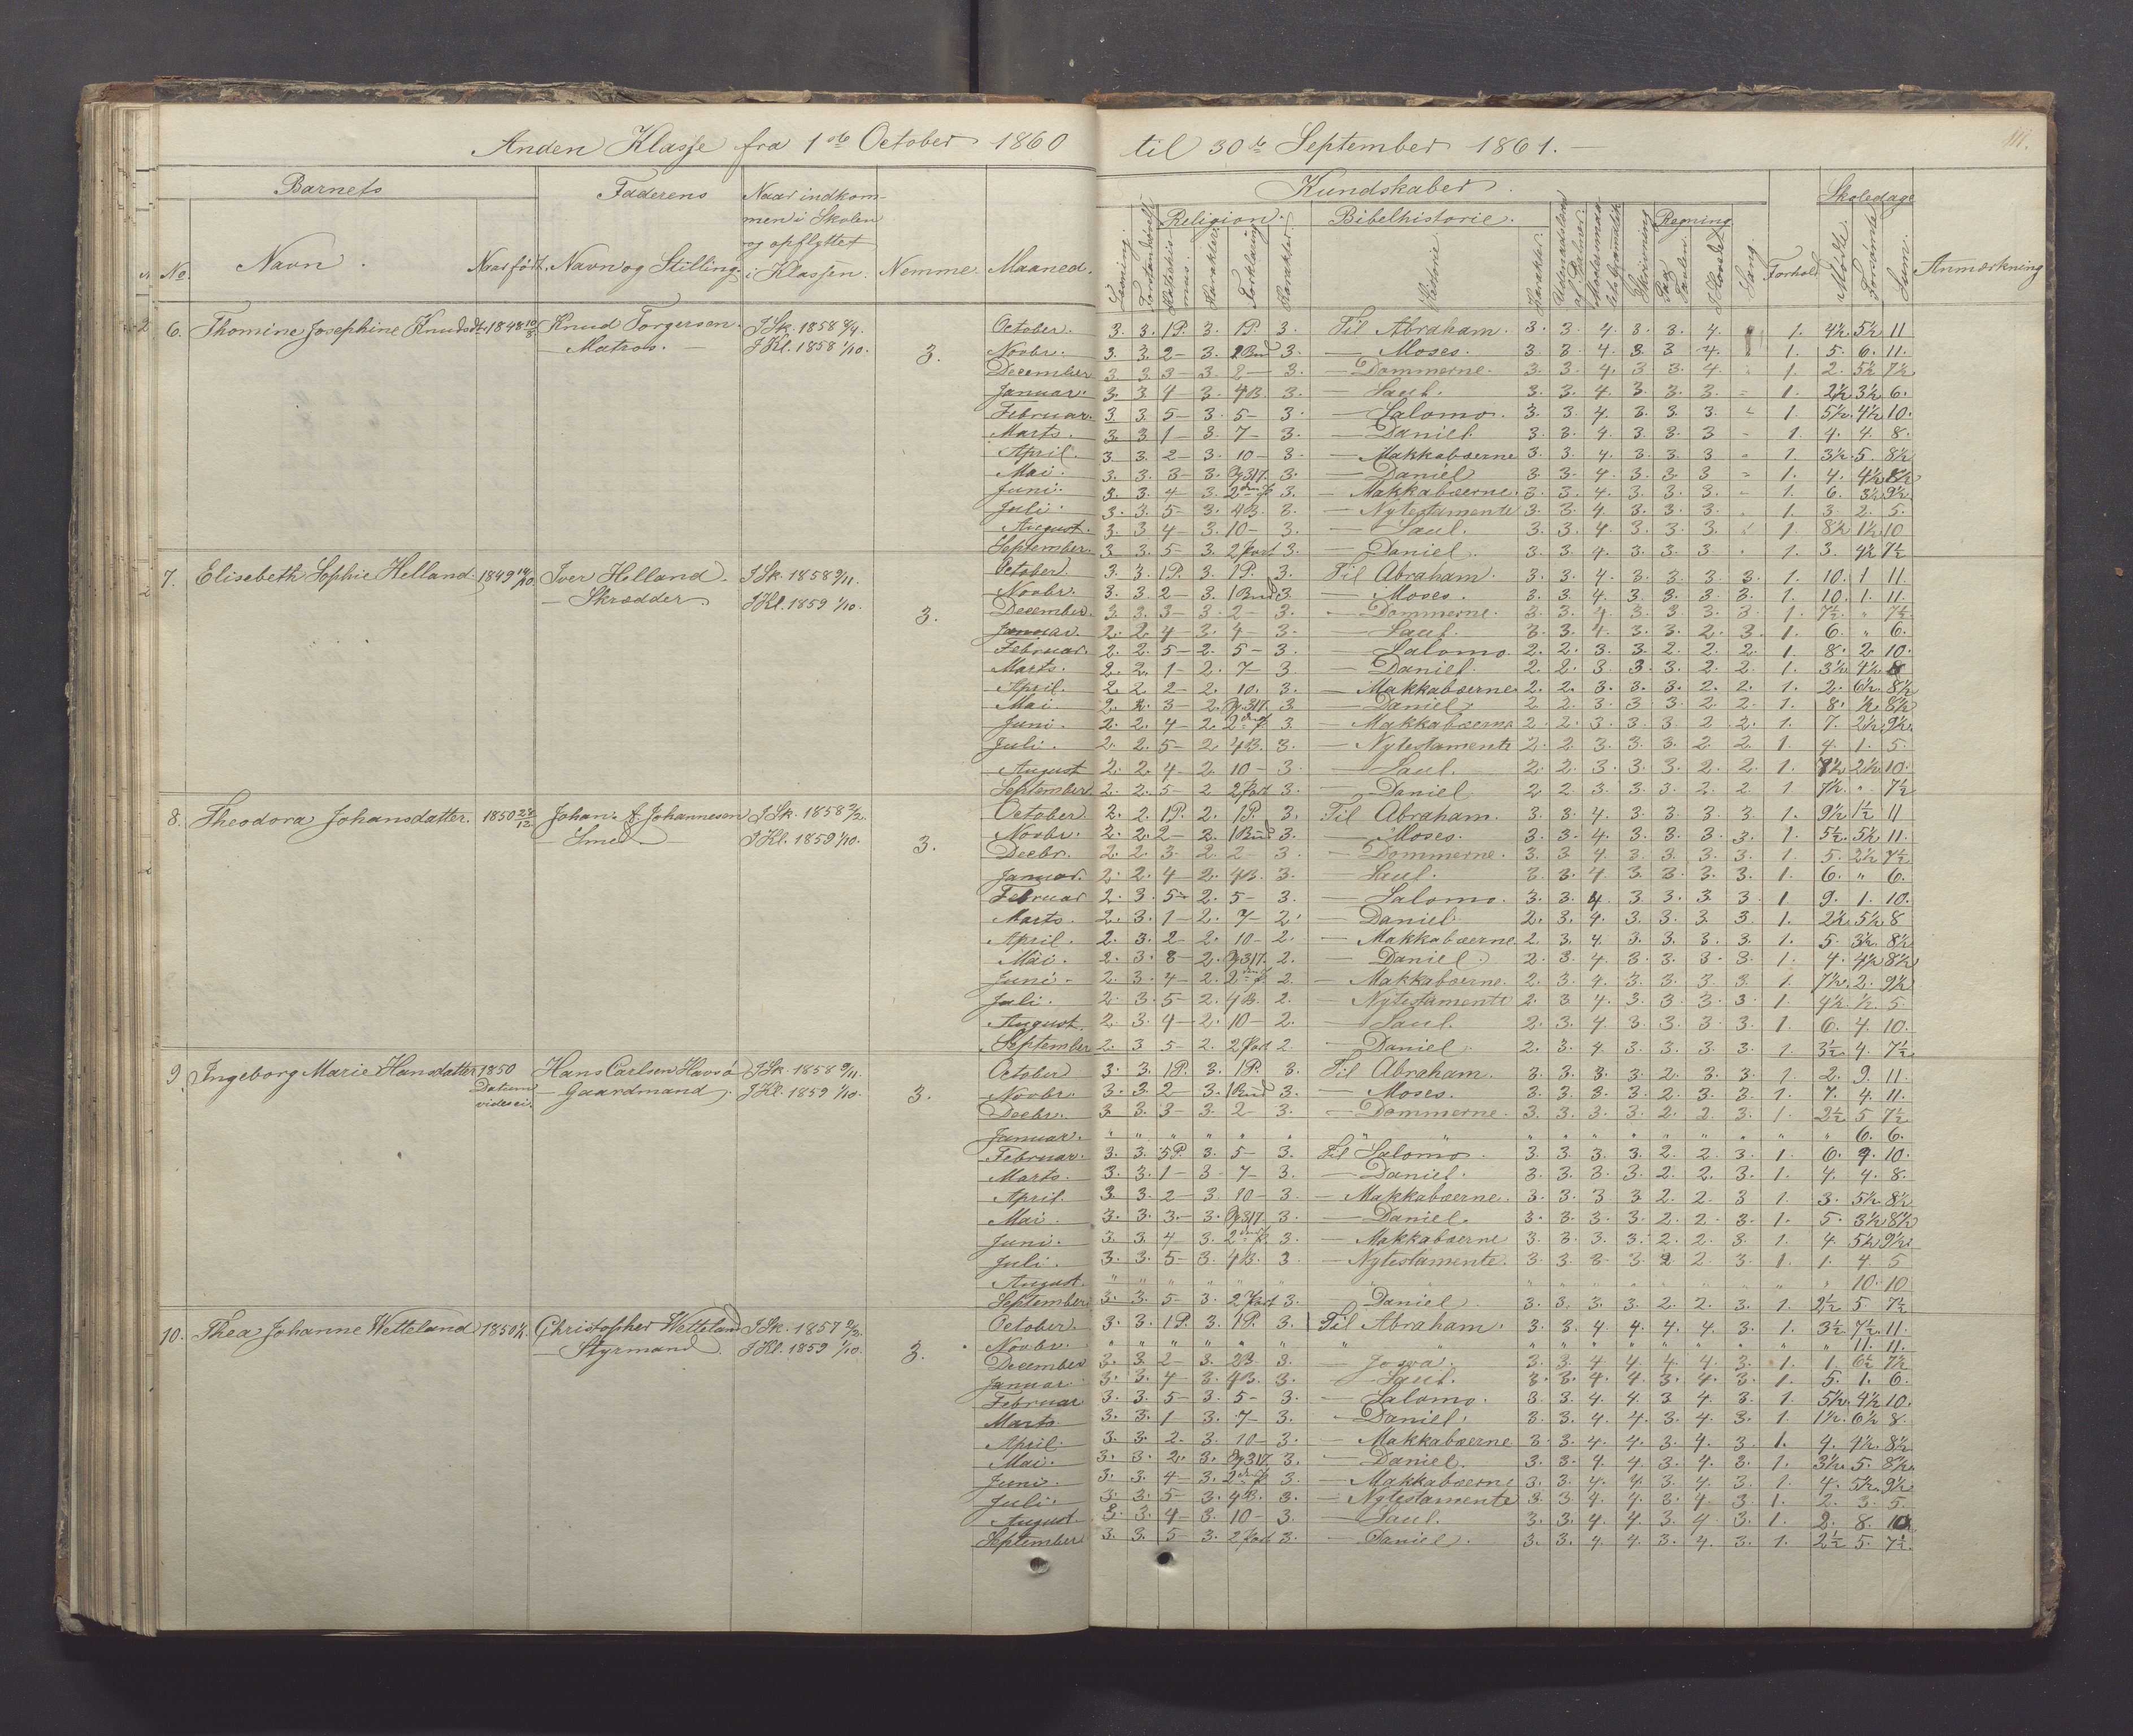 Anden Klasse fra 1ste October 1860 til 30te September 1861. —
111.
Barnets Faderens Naar indkom- Kundskaber. Skoledage
men i Skolen Religion. Bibelhistorie. Regning
og opflyttet
No. Navn. Naar født. Navn og Stilling. i Klassen. Nemme. Maaned. Læsning. Forklaring Karakter. Historie Karakter. Skrivning Paa Tavlen Sang. Forhold. Mødte. Forsømte. Sum. Anmærkning
6. Thomine Josephine Knudsdtr. 1848 10/8 Knud Torgersen. I Sk. 1858 October. 3. 3. 1P. 3. 1P. 3. Til Abraham. 3. 3. 4. 3. 3. 4. 1. 4½ 5½ 11
— Matros. — I Kl. 1858 1/10. 3. Novbr. 3. 3. 2 — 3. 3. — Moses. 3. 3. 4. 3. 3 4. 1. 5. 6. 11.
December 3. 3. 3 — 3. 2 — 3. — Dommerne. 3. 3. 4. 3 3. 4. 1. 2. 5½ 7½
Januar. 3. 3. 4 — 3. 4B. 3. — Saul. 3. 3. 4. 3. 3. 3. 1. 2½ 3½ 6.
Februar. 3 3. 5 — 3. 5 — 3. — Salomo. 3. 3. 4. 3. 3. 3. 1. 5½ 4½ 10.
Marts. 3. 3. 1 — 3. 7 — 3. — Daniel. 3. 3. 4. 3. 3. 3 1. 4. 4. 8.
April. 3. 3. 2 — 3. 10 — 3. — Makkabæerne 3. 3. 4. 3. 3. 3 1. 3½ 5. 8½
Mai. 3. 3. 3 — 3. 3. — Daniel 3. 3. 4. 3. 3. 3 1. 4. 4½ 8½
Juni. 3. 3. 4 — 3. 3. — Makkabæerne. 3. 3. 4. 3. 3. 3. 1. 6. 3½ 9½
Juli. 3. 3. 5 — 3. 4B. 3. — Nytestamente 3. 3. 4. 3. 3. 3. 1. 3. 2. 5.
August. 3. 3. 4 — 3. 10 — 3. — Saul. 3. 3. 4. 3. 3. 3. 1. 8½ 1½ 10
September. 3. 3. 5 — 3. 3. — Daniel. 3. 3. 4. 3. 3. 3 1. 3. 4½ 7½
7. Elisebeth Sophie Helland. 1849 14/10. Iver Helland. I Sk. 1858 9/11. October. 3. 3. 1P. 3. 1P. 3. Til Abraham. 3. 3. 4. 3. 3. 3. 3. 1. 10. 1 11.
— Skrædder. I Kl. 1859 1/10. 3. Novbr. 3. 3 2 — 3. 3 — Moses. 3. 3. 4. 3. 3. 3. 3. 1. 10. 1. 11.
December. 3. 3. 3 — 3. 2 — 3. — Dommerne. 3. 3. 4. 3. 3. 3. 3. 1. 7½ " 7½
Januar. 2. 2. 4 — 3. 4 — 3. — Saul. 3. 3. 4. 3. 3. 2. 3. 1. 6. " 6.
Februar. 2. 2. 5 — 2. 5 — 3. — Salomo. 2. 2. 3. 3. 2. 2. 2. 1. 8. 2. 10.
Marts. 2. 2. 1 — 2. 7 — 3. — Daniel. 2. 2. 3. 3. 3. 2. 2. 1. 3½ 4½ 8
April. 2. 2. 2 — 2. 10. 3. — Makkabæerne 2. 2. 3. 3. 3. 2. 2. 1. 2. 6½ 8½
Mai. 2. 2. 3 — 2. 3 — Daniel. 2 2. 3. 3 3. 2. 2. 1. 8. ½ 8½
Juni. 2. 2. 4 — 2. 3 — Makkabæerne 2. 2. 3. 3. 3. 2. 2. 1. 7. 2½ 9½
Juli. 2. 2. 5 — 2. 4B. 3. — Nytestamente 2. 2 3. 3. 3. 2 2. 1. 4. 1. 5.
August 2. 2. 4 — 2. 10 — 3. — Saul. 2. 2. 3. 3. 3. 2. 2. 1. 7½ 2½ 10.
September 2. 2. 5 — 2 3 — Daniel 2 2. 3. 3. 3. 2. 2. 1 7½ " 7½
8. Theodora Johansdatter. 1850 Johan Johannesen I Sk. 1858 October 2. 2 1P. 2. 1P. 3. Til Abraham. 3. 3. 4. 3. 3. 3. 3. 1. 9½ 1½ 11
— Smed. — I Kl. 1859 1/10. 3. Novbr. 2. 2. 2 — 2. 3. — Moses. 3. 3. 4. 3. 3. 3. 3. 1. 5½ 5½ 11.
Decbr. 2. 2. 3. 2. 2 — 3. — Dommerne. 3. 3 4. 3. 3. 3. 3. 1. 5. 2½ 7½
Januar. 2. 2. 4 — 2. 4B. 3. — Saul. 3. 3. 4. 3. 3. 3. 3. 1. 6. " 6.
Februar 2. 3. 5 — 2. 5 — 3. — Salomo. 3. 3. 4 3. 3. 3. 3 1 9. 1. 10.
Marts. 2. 3. 1 — 2. 7 — 2. — Daniel. 2. 3. 4. 3. 3. 3. 3 1. 2½ 5½ 8
April. 2. 3. 2 — 2. 10 — 2. — Makkabæerne. 2. 3. 4. 3. 3. 3. 3. 1. 5. 3½ 8½
Mai. 2. 3. 3 — 2. 2. — Daniel. 2. 3. 4. 3. 3. 3. 3. 1. 4. 4½ 8½
Juni. 2. 3. 4 — 2. 2. — Makkabæerne. 2. 3. 4. 3. 3. 3. 3. 1. 7½ 2. 9½
Juli. 2. 3. 5 — 2. 4B. 2. — Nytestamente 2. 3 4. 3. 3. 3. 3. 1. 4½ ½ 5
August. 2. 3. 4 — 2. 10 — 2. — Saul. 2. 3. 4. 3. 3. 3. 3. 1. 6. 4. 10.
September 2. 3 5 — 2. 2 — Daniel. 2. 3. 4. 3. 3. 3. 3. 1. 3½ 4. 7½
9. Ingeborg Marie Hansdatter 1850 Hans Carlsen I Sk. 1858 9/11. October 3. 3. 1P. 3. 1P. 3. Til Abraham. 3. 3. 3. 3. 2. 3. 3. 1. 2. 9. 11.
Datum — Gaardmand. I Kl. 1859 1/10. 3. Novbr. 3. 3. 2 — 3. 3. — Moses. 3. 3. 3. 3. 2. 3. 3. 1. 7. 4. 11.
Decbr. 3 3. 3 — 3. 2 — 3. — Dommerne. 3. 3. 3. 3. 2. 2 3. 1. 2½ 5 7½
Januar. " " " " " " " " " " " " " " " " " 6. 6.
Februar. 3. 3. 5P. 3. 5 — 3. Til Salomo. 3. 3. 3. 3. 2. 2. 3. 1. 10.
Marts. 3. 3. 1 — 3 — 7 — 3. — Daniel. 3. 3. 3. 3. 2. 2. 3. 1. 4. 4. 8.
April. 3. 3. 2 — 3. 10 — 3. — Makkabæerne. 3. 3. 3. 3 2. 2. 3 1. 3. 5½ 8½
Mai. 3. 3. 3 — 3. 3. — Daniel. 3. 3. 3. 3. 2. 2. 3. 1. 5. 3½ 8½
Juni. 3. 3. 4 — 3. 3. — Makkabæerne 3. 3. 3. 3. 2. 2. 3. 1. 4. 5½ 9½
Juli. 3. 3. 5 — 3. 4B. 3 — Nytestamente. 3. 3. 3. 3. 2 2. 3. 1. 1. 4. 5
August. " " " " " " " " " " " " " " " " 10. 10
September. 3. 3. 5 — 3. 3. — Daniel. 3. 3. 3. 3. 2. 2. 3. 1. 2½ 5. 7½
10. Thea Johanne Wetteland 1850 Christopher Wetteland I Sk. 1857 October. 3. 3. 1P. 3. 1P. 3. Til Abraham. 3. 3. 4. 4. 4. 4. 3. 1. 3½ 7½ 11.
— Styrmand. I Kl. 1859 1/10. 3. Novbr. " " " " " " " " " " " " " " " " 11. 11.
December 3. 3. 2 — 3. 2B. 3. — Josva. 3. 3. 4. 4. 4. 4. 3. 1. 1. 6½ 7½
Januar. 3. 3. 4 — 3. 4B. 3. — Saul. 3. 3. 4. 4. 3. 4. 3. 1. 5. 1. 6.
Februar 3. 3. 5 — 3. 5 — 3. — Salomo. 3. 3. 4. 4. 3 4. 3. 1. 5½ 4½ 10.
Marts 3. 3. 1 3. 7 — 3. — Daniel. 3. 3. 4. 4. 3. 4. 3. 1. 1½ 6½ 8.
April. 3. 3. 2 — 3. 10 — 3. — Makkabæerne 3. 3. 4. 4. 3. 4. 3. 1. 4. 4½ 8½
Mai. 3. 3. 2. 3. 3. — Daniel. 3. 3. 4. 4. 3. 4. 3. 1. 3½ 5. 8½
Juni. 3. 3. 4 — 3. 3. — Makkabæerne 3. 3. 4. 4. 3. 4. 3. 1. 4. 5½ 9½
Juli. 3. 3. 5 — 3. 4B. 3. — Nytestamente 3. 3. 4. 4. 3. 4. 3. 1. 2. 3. 5.
August. 3. 3. 4 — 3. 10 — 3. — Saul. 3. 3. 4. 4. 3. 4. 3. 1. 2. 8. 10
September 3. 3. 5 — 3. 3. — Daniel. 3. 3. 4. 4. 3. 4. 3. 1. 2½ 5. 7½